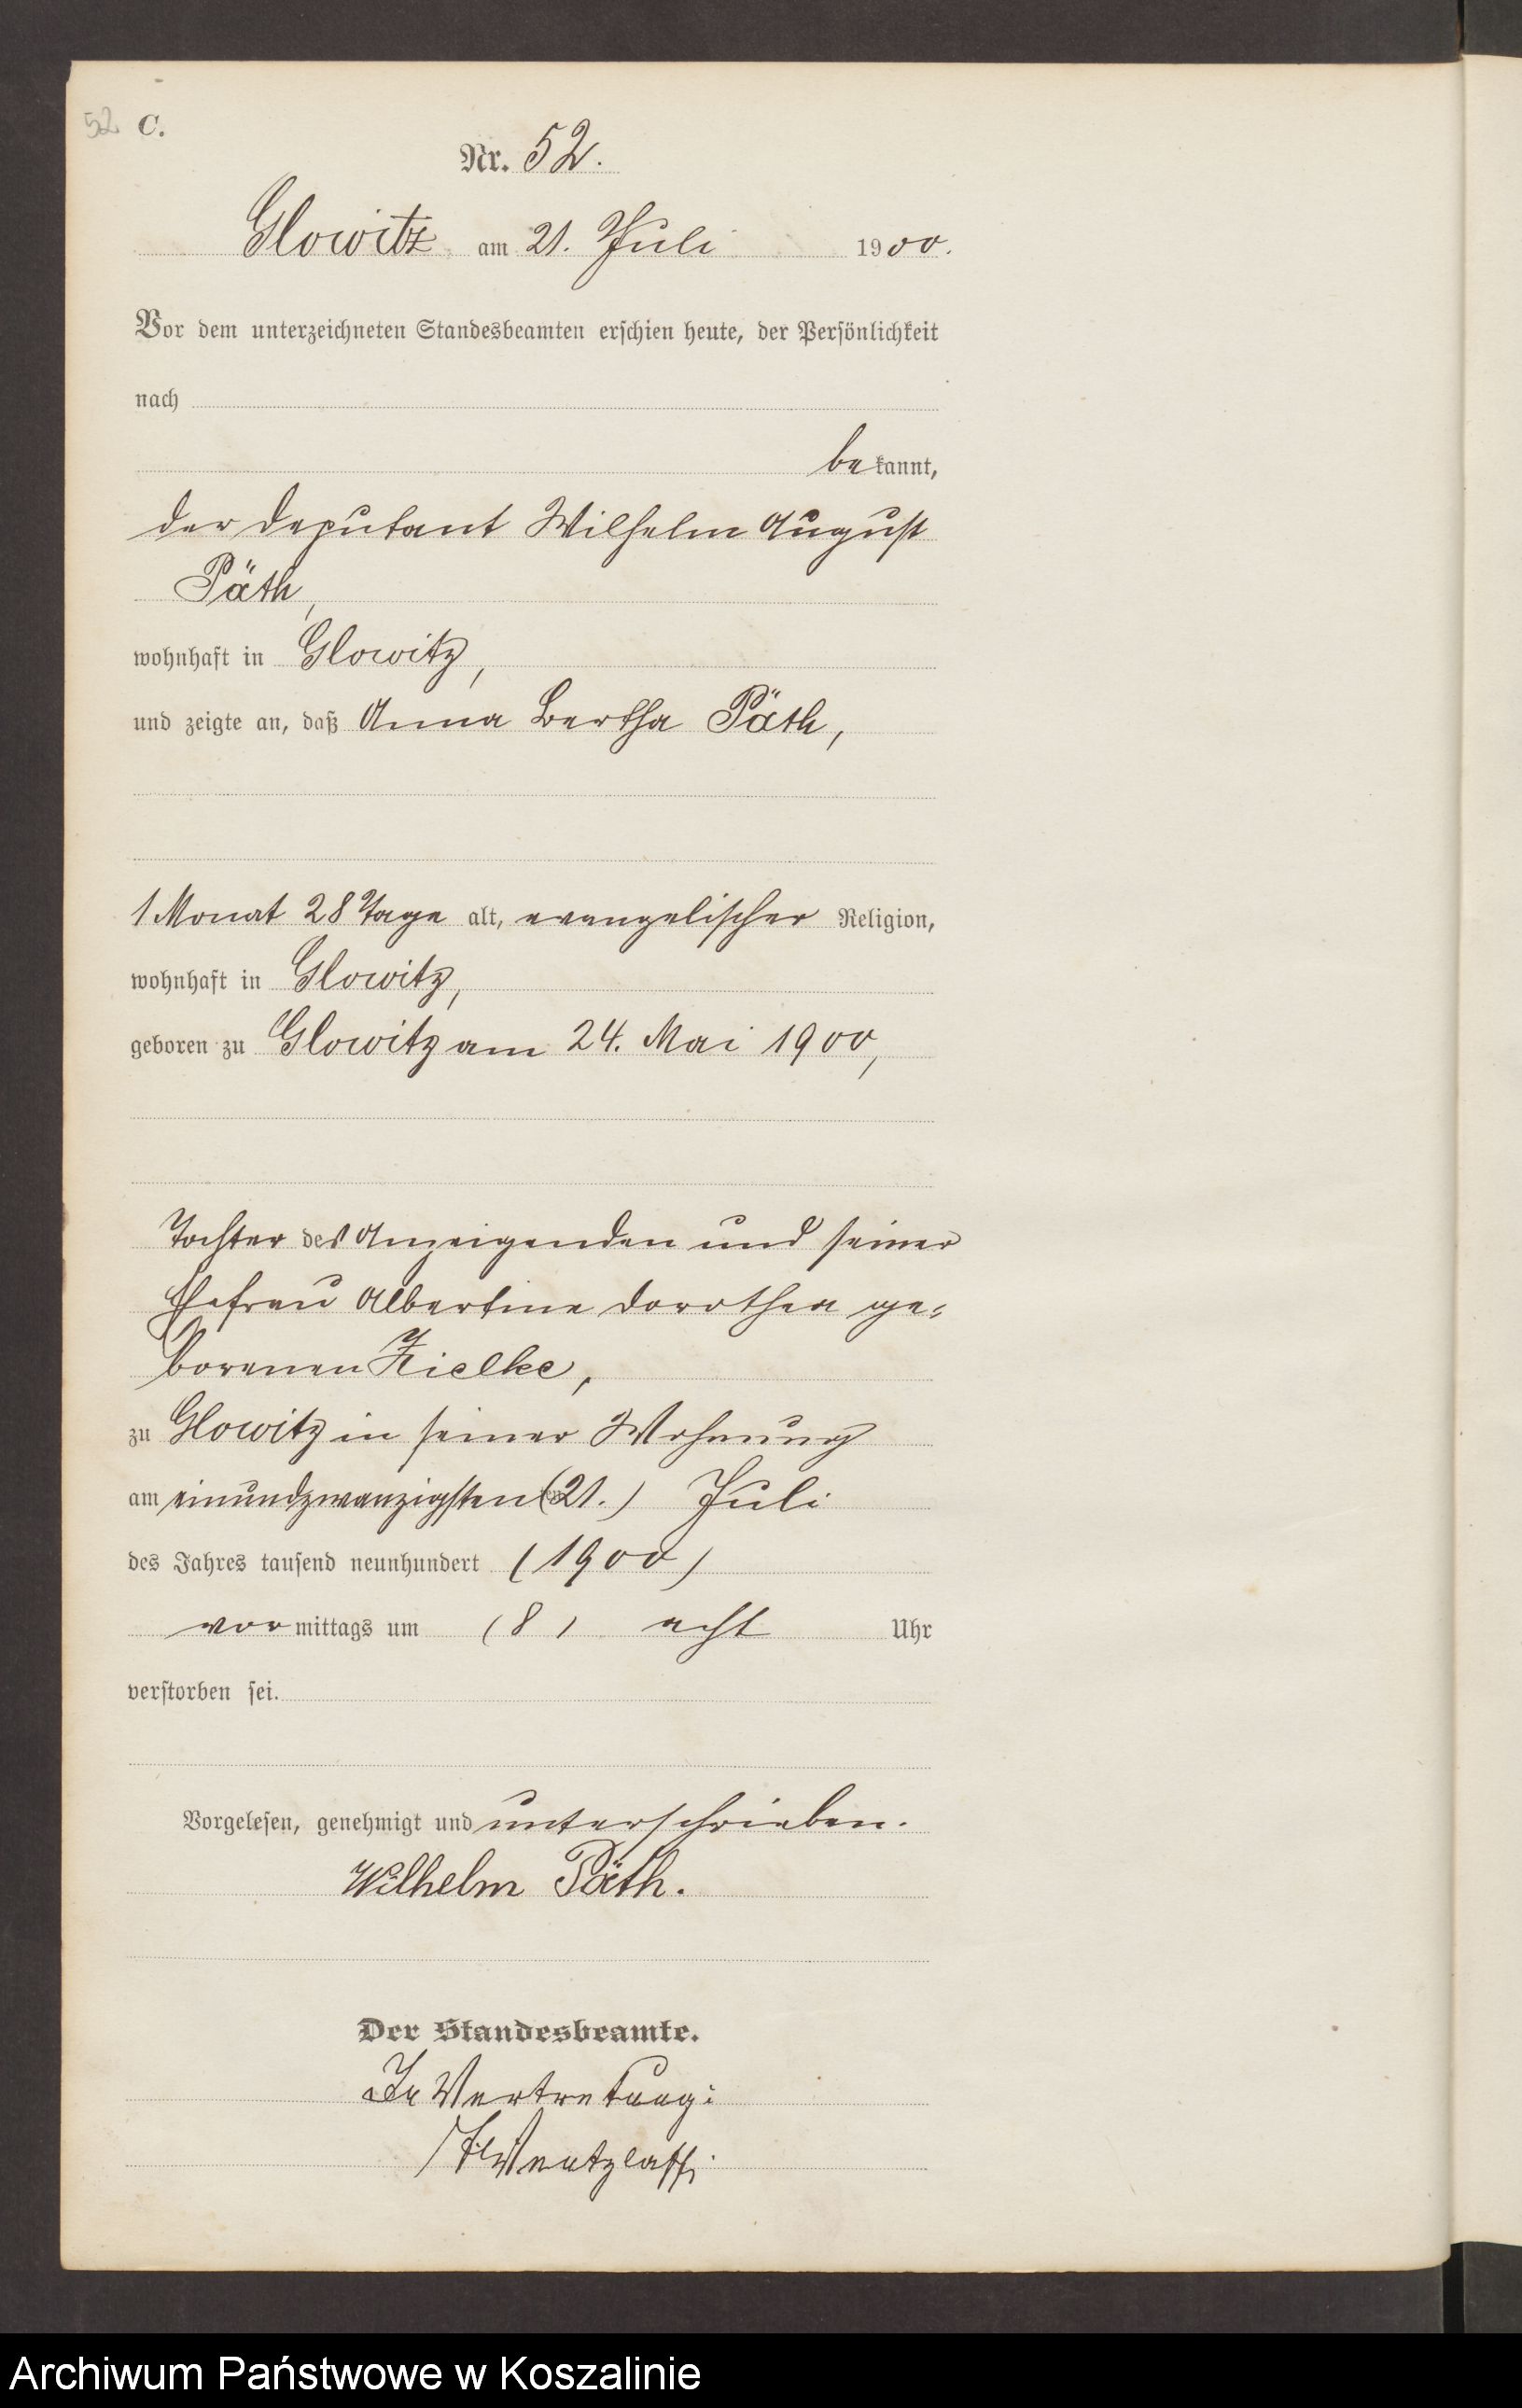 52 C.
Nr. 52.
Glowitz am 21. Juli 1900.
Vor dem unterzeichneten Standesbeamten erschien heute, der Persönlichkeit
nach
bekannt,
der Deputant Wilhelm August
Päth,
wohnhaft in Glowitz,
und zeigte an, daß Anna Bertha Päth,
1 Monat 28 Tage alt, evangelischer Religion,
wohnhaft in Glowitz,
geboren zu Glowitz am 24. Mai 1900,
Tochter des Anzeigenden und seiner
Ehefrau Albertine Dorothea ge-
borenen Kielke,
zu Glowitz in seiner Wohnung
am einundzwanzigsten (21.) Juli
des Jahres tausend neunhundert (1900)
vormittags um (8) acht Uhr
verstorben sei.
Vorgelesen, genehmigt und unterschrieben.
Wilhelm Päth.
Der Standesbeamte.
In Vertretung:
Wentzlaff.
Archiwum Państwowe w Koszalinie